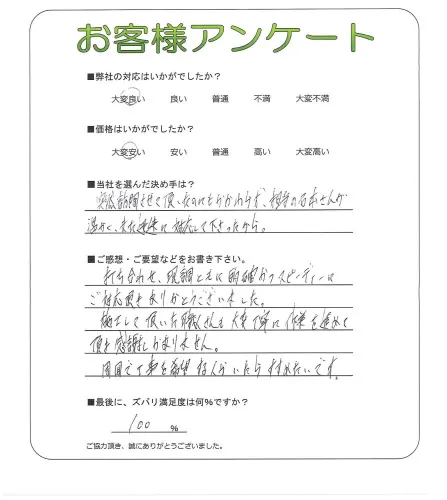 お客様アンケート
■弊社の対応はいかがでしたか？
大変良い 良い 普通 不満 大変不満
■価格はいかがでしたか？
大変安い 安い 普通 高い 大変高い
■当社を選んだ決め手は？
突然訪問させて頂いたのにもかかわらず、担当の石本さんが
温かく、また迅速に対応して下さったから。
■ご感想・ご要望などをお書き下さい。
打ち合わせ、現調ともに明確かつスピーディーに
ご対応頂きありがとうございました。
施工して頂いた職人さんも大変丁寧に作業を進めて
頂き感謝しかありません。
周囲で工事を希望する人がいたらすすめたいです。
■最後に、ズバリ満足度は何%ですか？
100 %
ご協力頂き、誠にありがとうございました。